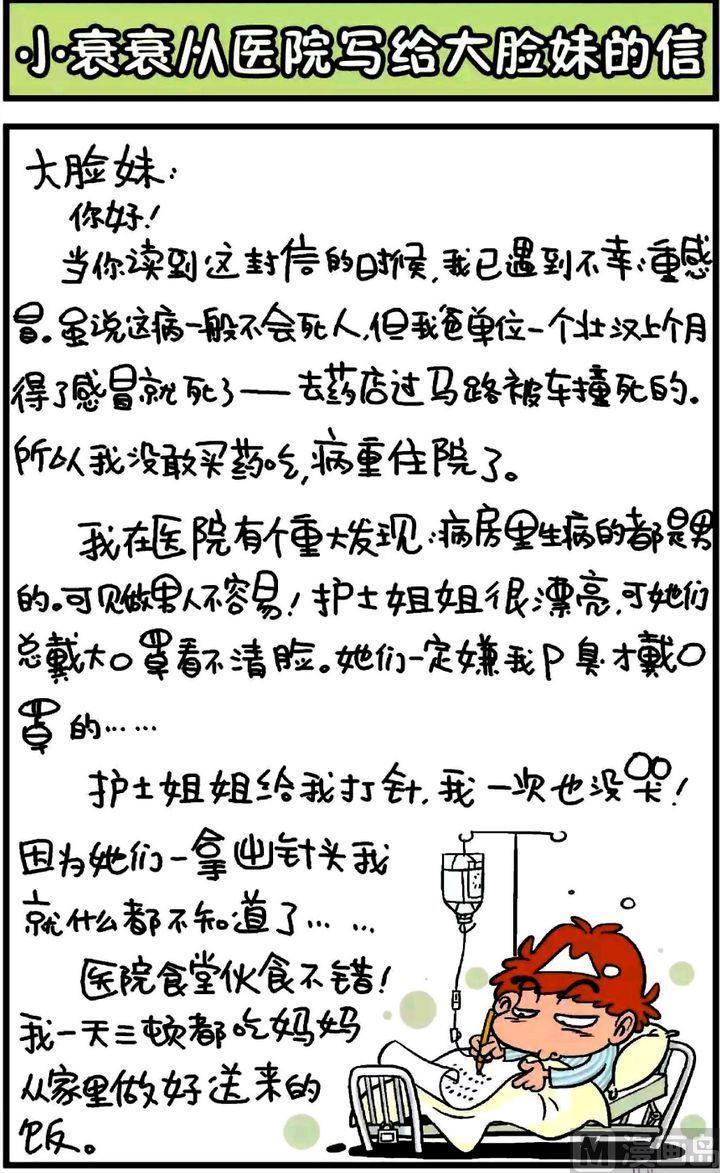 小衰衰从医院写给大脸妹的信
大脸妹:
你好!
当你读到这封信的日时候,我已遇到不幸:重感
冒。虽说这病一般不会死人,但我爸单位一个壮汉上个月
得了感冒就死了——去药店过马路被车撞死的。
所以我没敢买药吃,病重住院了。
我在医院有个重大发现:病房里生病的都是男
的。可见做男人不容易!护士姐姐很漂亮,可她们
总戴大口罩看不清脸。她们一定嫌我P臭才戴口
罩的……
护士姐姐给我打针,我一次也没哭!
因为她们一拿出针头我
就什么都不知道了……
医院食堂伙食不错!
我一天三顿都吃妈妈
从家里做好送来的
饭。
漫画岛